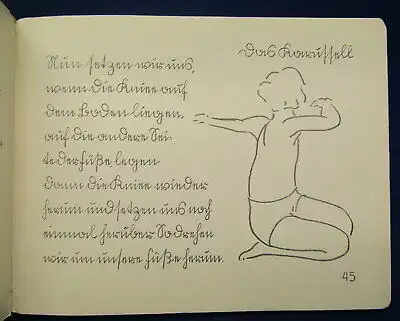 Das Karussell
Nun setzen wir uns,
wenn die Kniee auf
dem Boden liegen,
auf die andere Sei-
te der Füße legen
dann die Kniee wieder
herum und setzen uns noch
einmal herüber So drehen
wir um unsere Füße herum.
45